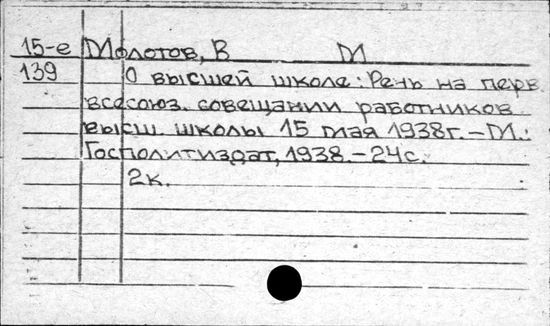 15-е Молотов, В М
139 О высшей школе: Речь на перв.
всесоюз. совещании работников
высш. школы 15 мая 1938г. – М.:
Госполитиздат, 1938. – 24с.
2к.